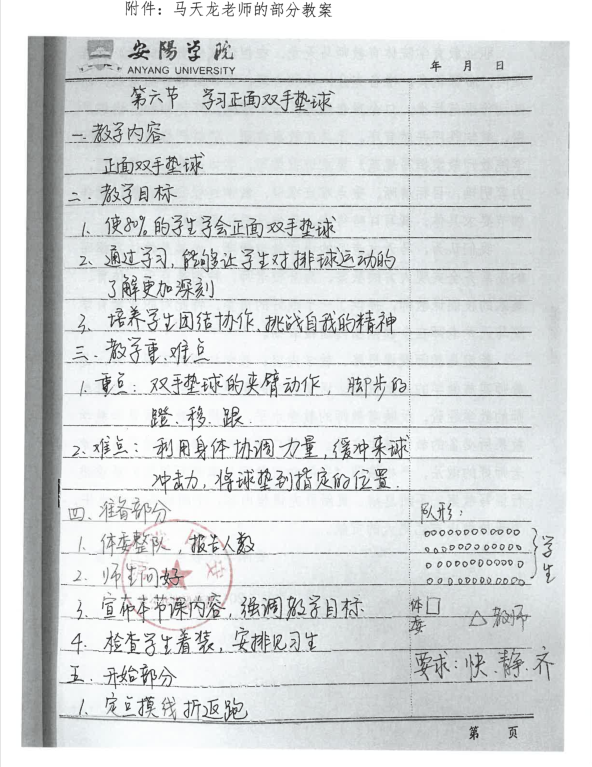 附件：马天龙老师的部分教案
安陽学院
ANYANG UNIVERSITY
年 月 日
第六节 学习正面双手垫球
一.教学内容
正面双手垫球
二.教学目标
1. 使80%的学生学会正面双手垫球
2. 通过学习,能够让学生对排球运动的
了解更加深刻
3. 培养学生团结协作、挑战自我的精神
三.教学重、难点
1. 重点：双手垫球的夹臂动作，脚步的
蹬、移、跟.
2. 难点：利用身体协调力量,缓冲来球
冲击力,将球垫到指定的位置.
四、准备部分
1. 体委整队,报告人数
2. 师生问好
3. 宣布本节课内容,强调教学目标
4. 检查学生着装,安排见习生
五.开始部分
1. 定点摸线折返跑
队形：
学生
体委
△教师
要求：快、静、齐
第 页